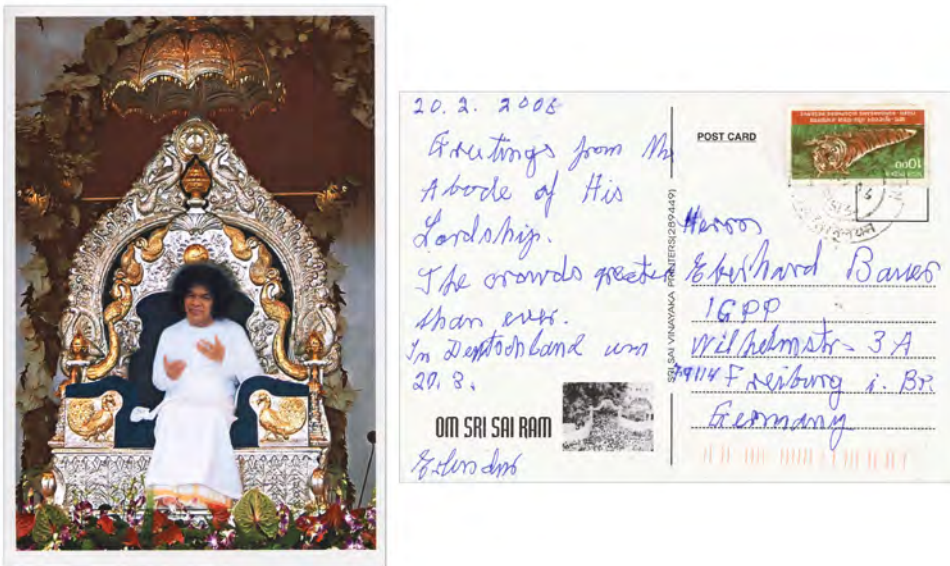 20. 2. 2006
Greetings from the
Abode of His
Lordship.
The crowds greater
than ever.
In Deutschland um
20. 3.
OM SRI SAI RAM
Erlendur
SRI SAI VINAYAKA PRINTERS(289449)
POST CARD
1000
Herrn
Eberhard Bauer
IGPP
Wilhelmstr- 3A
79114 Freiburg i. Br.
Germany